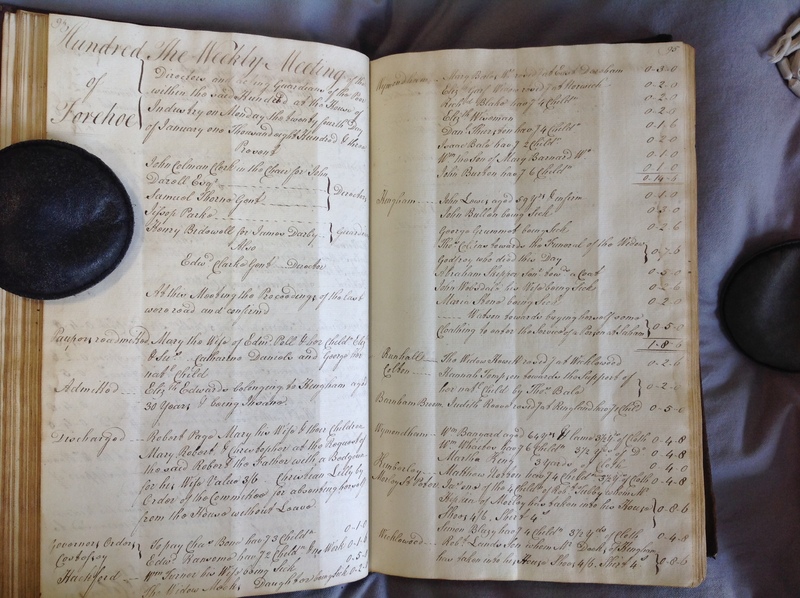 94
Hundred
of
Forehoe
The Weekly Meeting of the
Directors and acting Guardians of the Poor
within the said Hundred at the House of
Industry on Monday the twenty fourth Day
of January one Thousand eight Hundred & three
Present
John Colman Clerk in the Chair for John
Daroll Esqr
Samuel Thorne Gent
Jessop Parke
Directors
Henry Bedowell for James Darby
Guardian
Also
Edwd Clarke Gent Director
At this Meeting the Proceedings of the last
were read and confirmd
Paupers readmitted Mary the Wife of Edmd Poll & her Childn Eliz
& Susn Catharine Daniels and George her
natl Child
Admitted Elizth Edwards belonging to Hingham aged
30 Years & being
Discharged Robert Page Mary his Wife & their Children
Mary Robert & Christopher at the Request of
the said Robert the Father with a Bedgown
for his Wife Value 3/6 Christian Lilly by
Order of the Committee for absenting herself
from the House without Leave
Governors Orders
Costessy To pay Chas Bone has 3 Childn 0-1-0
Edwd Ransome has 7 Childn & no Work 0-1-0
Hackford Wm Turner his Wife being Sick 0-5-0
The Widow Daughter being Sick 0-2-0
95
Wymondham Mary Bales Wo resides at East Dereham 0-3-0
Elizth Wo resides at Norwich 0-2-0
Richd Blake has 4 Childn 0-2-0
Elizth Wiseman 0-2-0
Danl Thurston has 4 Childn 0-1-6
Isaac Bale has 2 Childn 0-2-0
Wm the Son of Mary Barnard Wo 0-1-0
John Burton has 6 Childn 0-1-0
0-14-6
Hingham John Lowe aged 59 yrs & infirm 0-1-0
John Bullon being Sick 0-3-0
George Grummet being Sick 0-2-6
Thos towards the Funeral of the Widow
Godfrey who died this Day 0-7-6
Abraham a Coat 0-5-0
John his Wife being Sick 0-2-6
Maria being Sick 0-2-0
Watson towards buying herself some
Cloathing to enter the Service of a Person at Saham 0-5-0
1-8-6
Runhall The Widow Howett resides at Wicklewood 0-2-6
Colton Hannah towards the Support of
her natl Child by Thos Bale 0-2-0
Barnham Broom Judith resides at Ringland has Child 0-5-0
Wymondham Wm Bangard aged 64 yrs & Lame 3½ yds of Cloth 0-4-8
Wm Wharton has 6 Childn 3½ yds of Do 0-4-8
Martha King 3 yards of Cloth 0-4-0
Kimberley Matthew has 4 Childn 3½ yds of Cloth 0-4-8
Morley St Peters Jas one of the 4 Childn of Robt whom Mr
Stephen of Morley has taken into his House
Shoes 4/6. Shirt 4 0-8-6
Simon has 4 Childn 3½ yds of Cloth 0-4-8
Wicklewood Robt Lands Son whom Mr of Hingham
has taken into his House Shoes 4/6. Shirt 4s 0-8-6